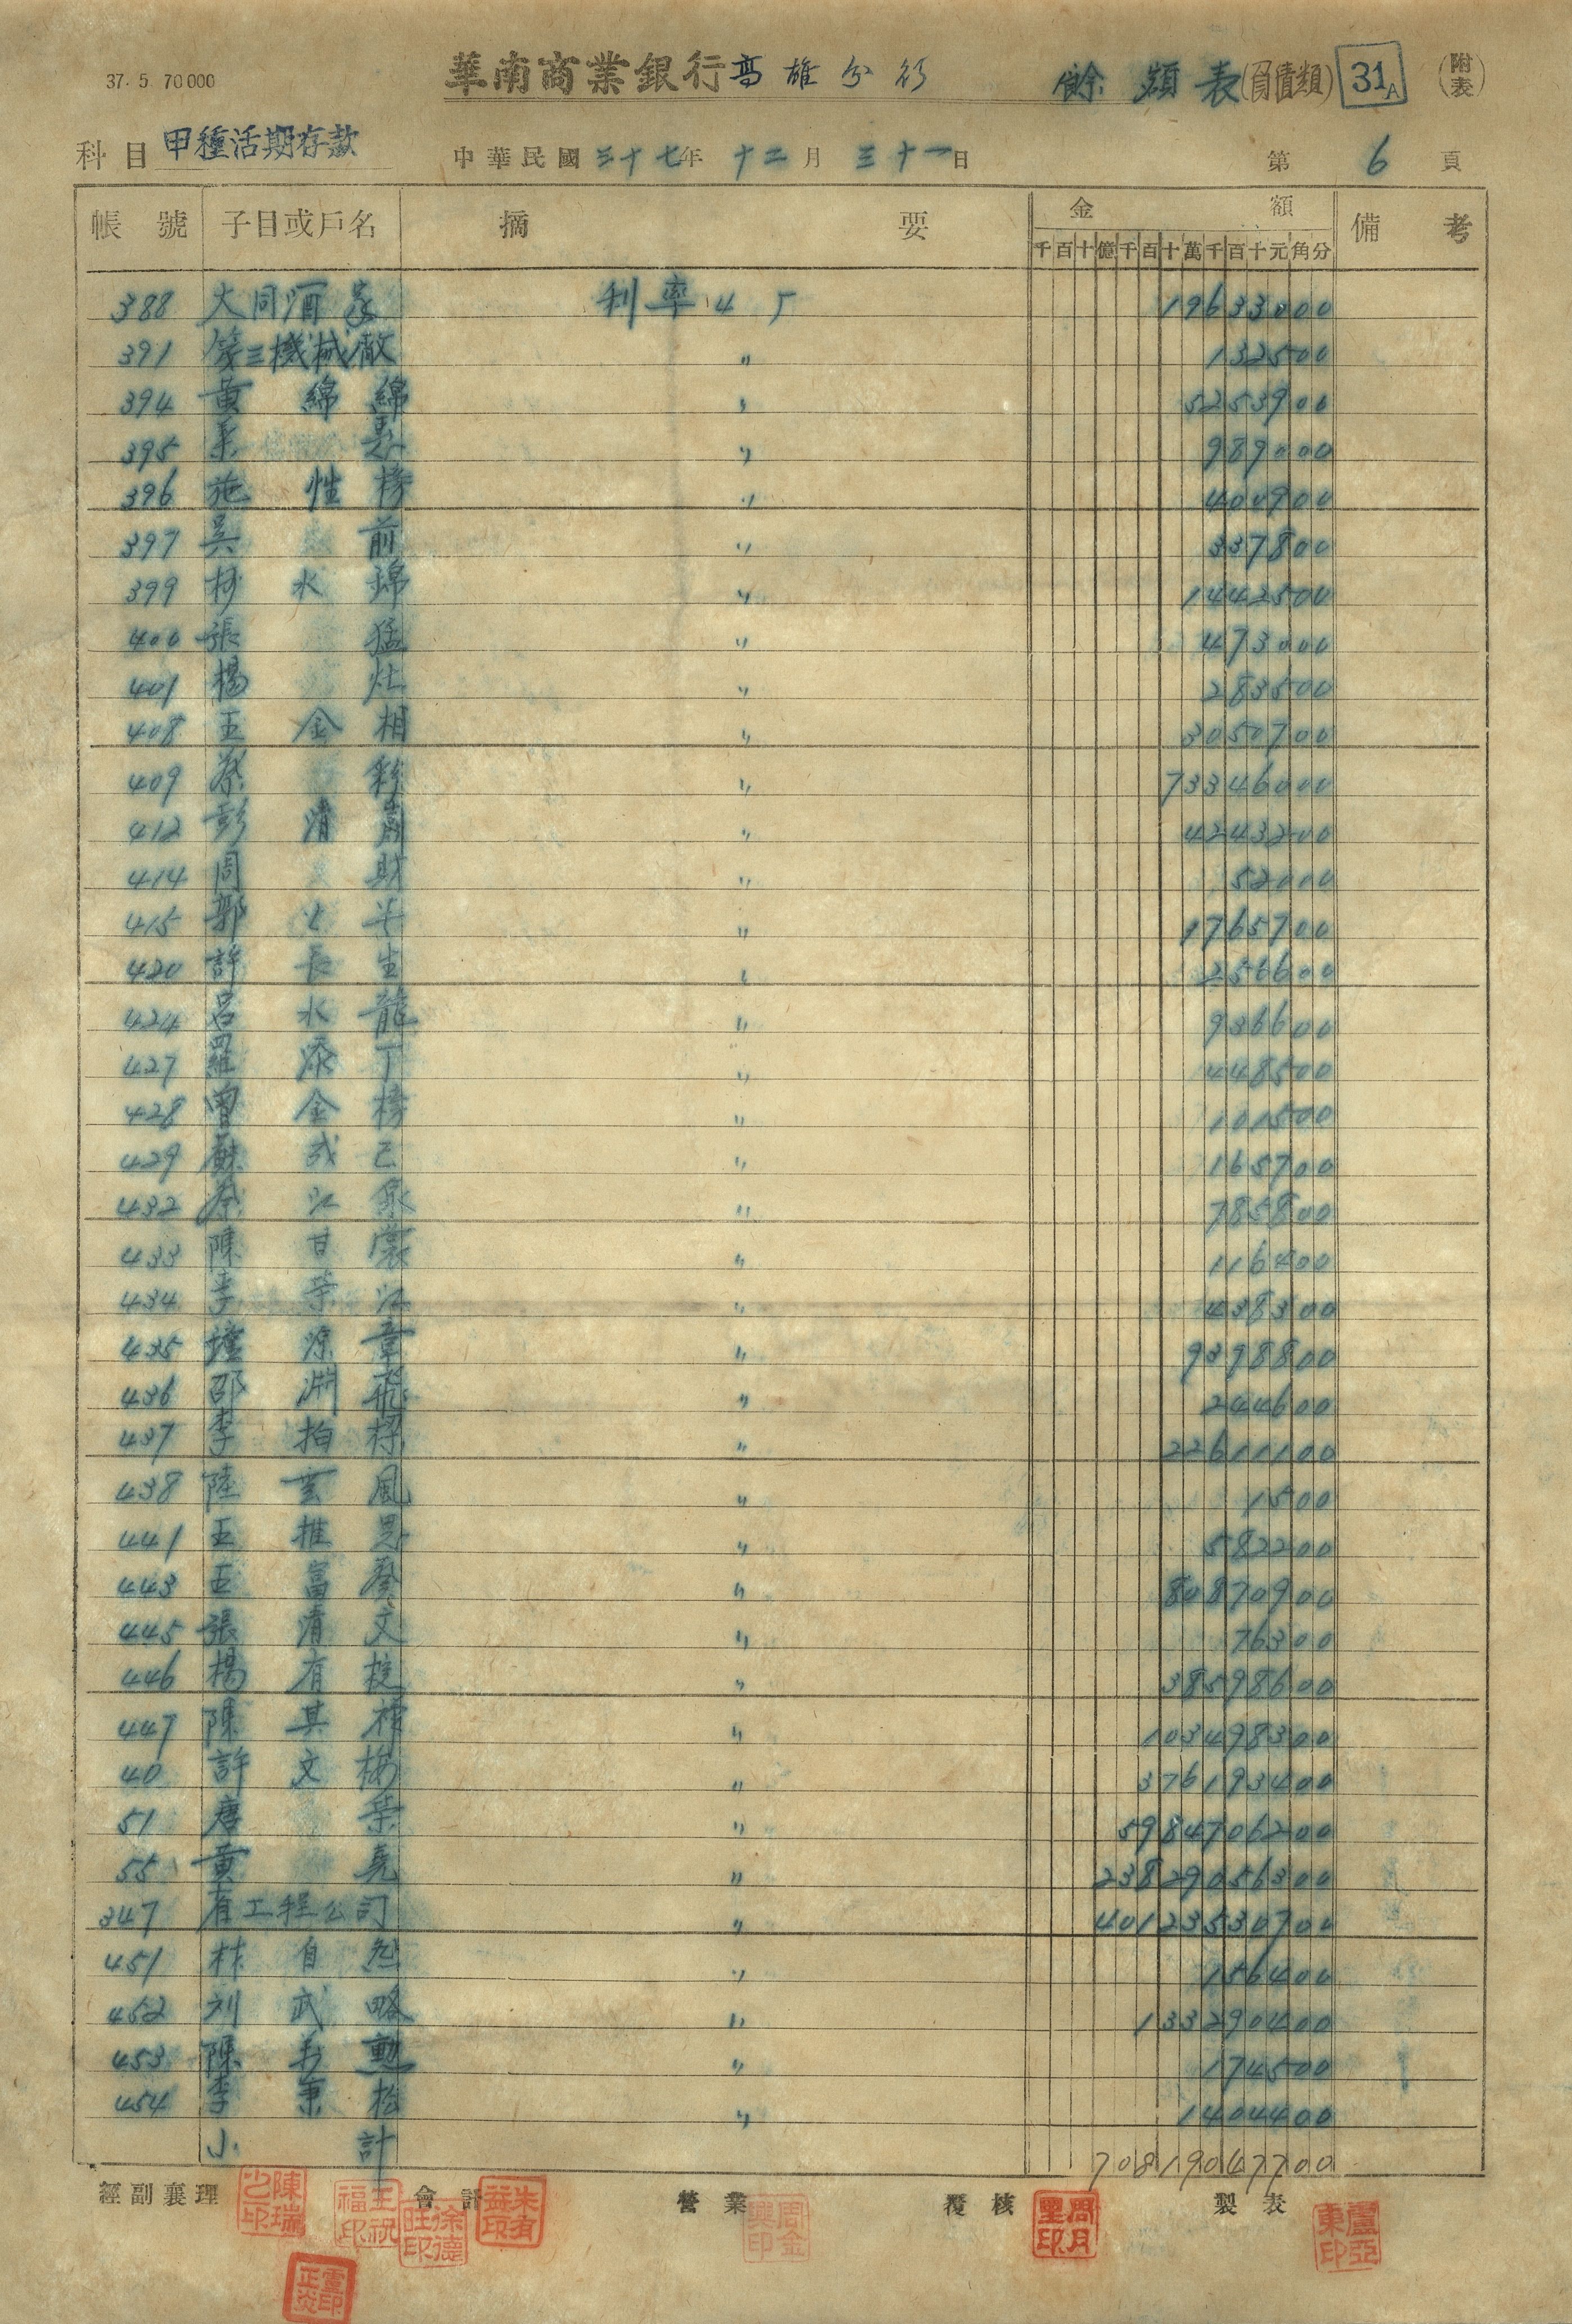 37. 5 70000
華南商業銀行高雄分行 餘額表(負債類) 31A (附表)
科目 甲種活期存款 中華民國三十七年十二月三十一日 第6頁
帳號 子目或戶名 摘要 金額 備考
千百十億千百十萬千百十元角分
388 大同酒家 利率45 19633000
391 第三機械廠 〃 132500
394 黃綿綿 〃 5253900
395 〃 989000
396 施性 〃 400900
397 吳前 〃 337800
399 水錦 〃 1442500
400 張猛 〃 473000
401 楊灶 〃 283500
408 王金相 〃 3050700
409 蔡彩 〃 73346000
412 彭清 〃 4243200
414 周財 〃 52000
415 郭 〃 1765700
420 許長生 〃 256600
424 呂水龍 〃 936600
427 羅添丁 〃 448500
428 曾金 〃 101500
429 蘇 〃 165700
432 蔡 〃 785800
433 陳甘棠 〃 116400
434 李榮江 〃 438300
435 源章 〃 9398800
436 邵淵飛 〃 244600
437 李柏樑 〃 22611100
438 陸雲風 〃 1500
441 王推 〃 582200
443 王富葵 〃 80870900
445 張清文 〃 76300
446 楊有 〃 38598600
447 陳其祥 〃 103498300
40 許文 〃 376193400
51 唐榮 〃 5984706200
55 黃堯 〃 23829056300
347 有工程公司 〃 40123530700
451 林自 〃 156400
452 刘武略 〃 133290400
453 陳勳 〃 174500
454 李秉松 〃 1404400
小計 70819047700
經副襄理 會計 營業 覆核 製表
陳瑞之印 王祝福印 徐德旺印 朱有益印 周金興印 周月印 盧亞東印